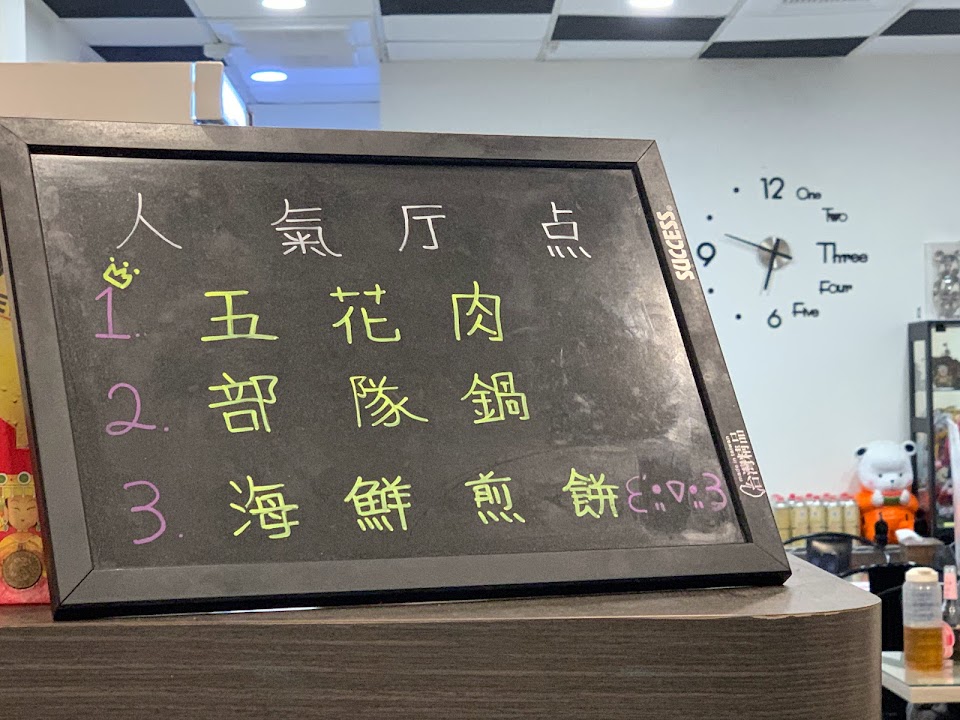 人氣厅点
1. 五花肉
2. 部隊鍋
3. 海鮮煎餅
SUCCESS
台灣精品
12
One
Two
9
Three
Four
6
Five